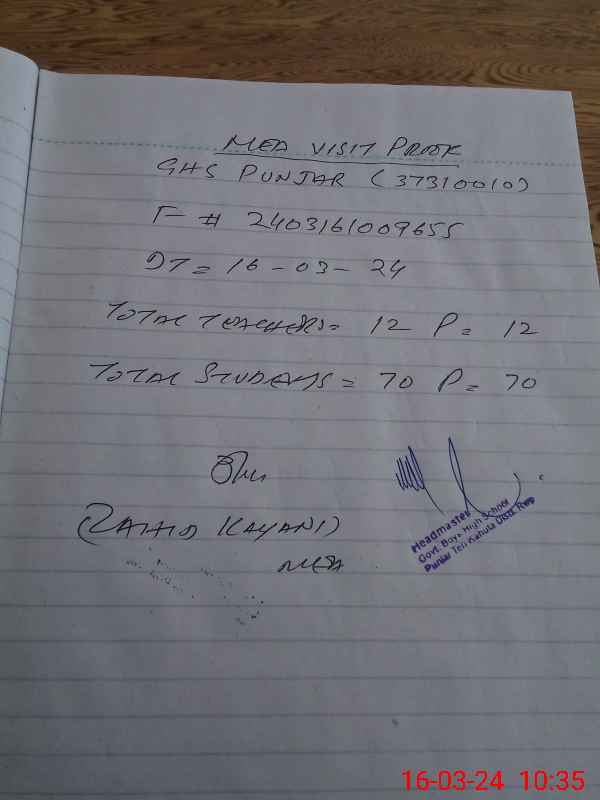 MEA VISIT PROOF
GHS PUNJAR (37310010)
F # 2403161009655
DT = 16-03-24
TOTAL TEACHERS = 12 P = 12
TOTAL STUDENTS = 70 P = 70
(ZAHID KAYANI)
MEA
Headmaster
Govt. Boys High School
Punjar Teh Kahuta Distt. Rwp
16-03-24 10:35